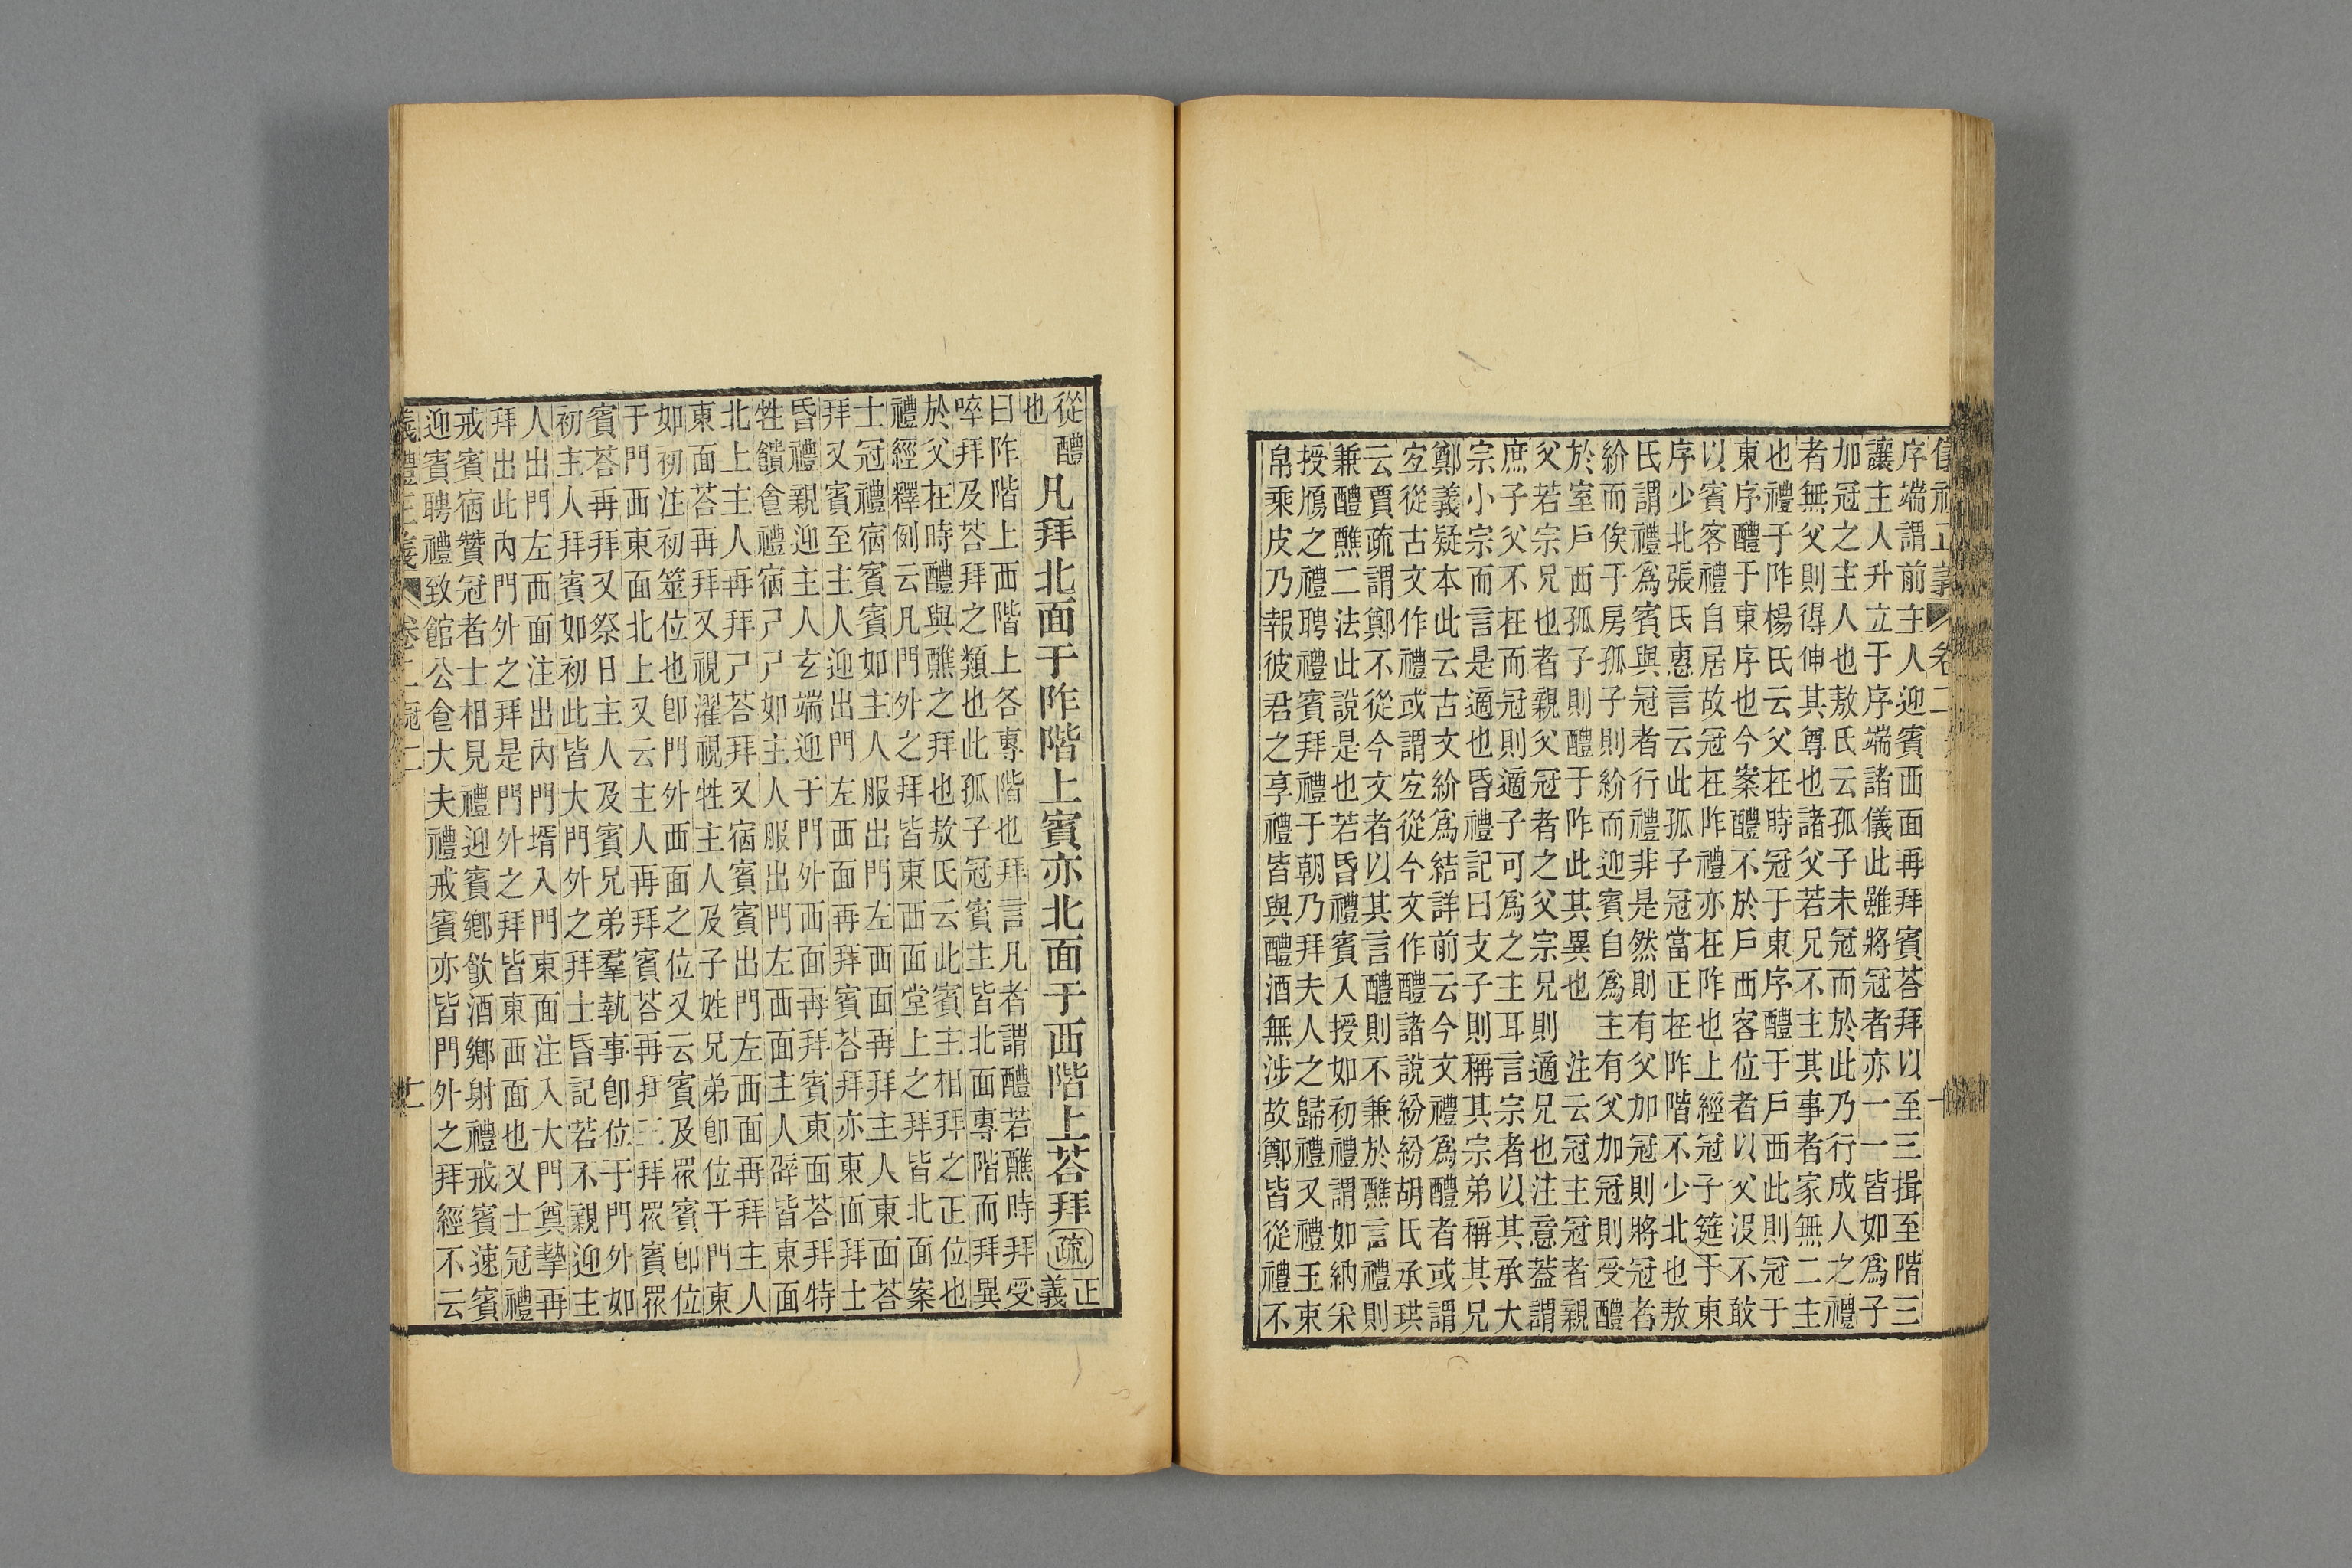 序端謂前主人迎賓西面再拜賓荅拜以至三揖至階三
讓主人升立于序端諸儀此雖將冠者亦一一皆如爲子
加冠之主人也敖氏云孤子未冠而於此乃行成人之禮
者無父則得伸其尊也諸父若兄不主其事者家無二主
也禮于阼楊氏云父在時冠于東序醴于戶西此則冠于
東序醴于東序也今案醴不於戶西客位者以父沒不敢
以賓客禮自居故冠在阼禮亦在阼也上經冠子筵于東
序少北張氏惠言云此孤子冠當正在阼階不少北也敖
氏謂禮爲賓與冠者行禮非是然則有父加冠則將冠者
紒而俟于房孤子則紒而迎賓自爲主有父加冠則受醴
於室戶西孤子則醴于阼此其異也　注云冠主冠者親
父若宗兄也者親父冠者之父宗兄則適兄也注意蓋謂
庶子父不在而冠則適子可爲之主耳言宗者以其承大
宗小宗而言是適也昏禮記曰支子則稱其宗弟稱其兄
鄭義疑本此云古文紒爲結詳前云今文禮爲醴者或謂
宐從古文作禮或謂宐從今文作醴諸說紛紛胡氏承珙
云賈疏謂鄭不從今文者以其言醴則不兼於醮言禮則
兼醴醮二法此說是也若昏禮賓入授如初禮謂如納采
授鴈之禮聘禮賓拜禮于朝乃拜夫人之歸禮又禮玉束
帛乘皮乃報彼君之享禮皆與醴酒無涉故鄭皆從禮不
從醴也　凡拜北面于阼階上賓亦北面于西階上荅拜 疏 正義
曰阼階上西階上各專階也拜言凡者謂醴若醮時拜受
啐拜及荅拜之類也此孤子冠賓主皆北面專階而拜異
於父在時醴與醮之拜也敖氏云此賓主相拜之正位也
禮經釋例云凡門外之拜皆東西面堂上之拜皆北面案
士冠禮宿賓賓如主人服出門左西面再拜主人東面荅
拜又賓至主人迎出門左西面再拜賓荅拜亦東面拜士
昏禮親迎主人玄端迎于門外西面再拜賓東面荅拜特
牲饋食禮宿尸尸如主人服出門左西面主人辟皆東面
北上主人再拜尸荅拜又宿賓賓出門左西面再拜主人
東面荅再拜又視濯視牲主人及子姓兄弟卽位于門東
如初注初筮位也卽門外西面之位又云賓及眾賓卽位
于門西東面北上又云主人再拜賓荅再拜三拜眾賓眾
賓荅再拜又祭日主人及賓兄弟羣執事卽位于門外如
初主人拜賓如初此皆大門外之拜士昏記若不親迎主
人出門左西面注出內門壻入門東面注入大門奠摯再
拜出此內門外之拜是門外之拜皆東西面也又士冠禮
戒賓宿贊冠者士相見禮迎賓鄉飲酒鄉射禮戒賓速賓
迎賓聘禮致館公食大夫禮戒賓亦皆門外之拜經不云